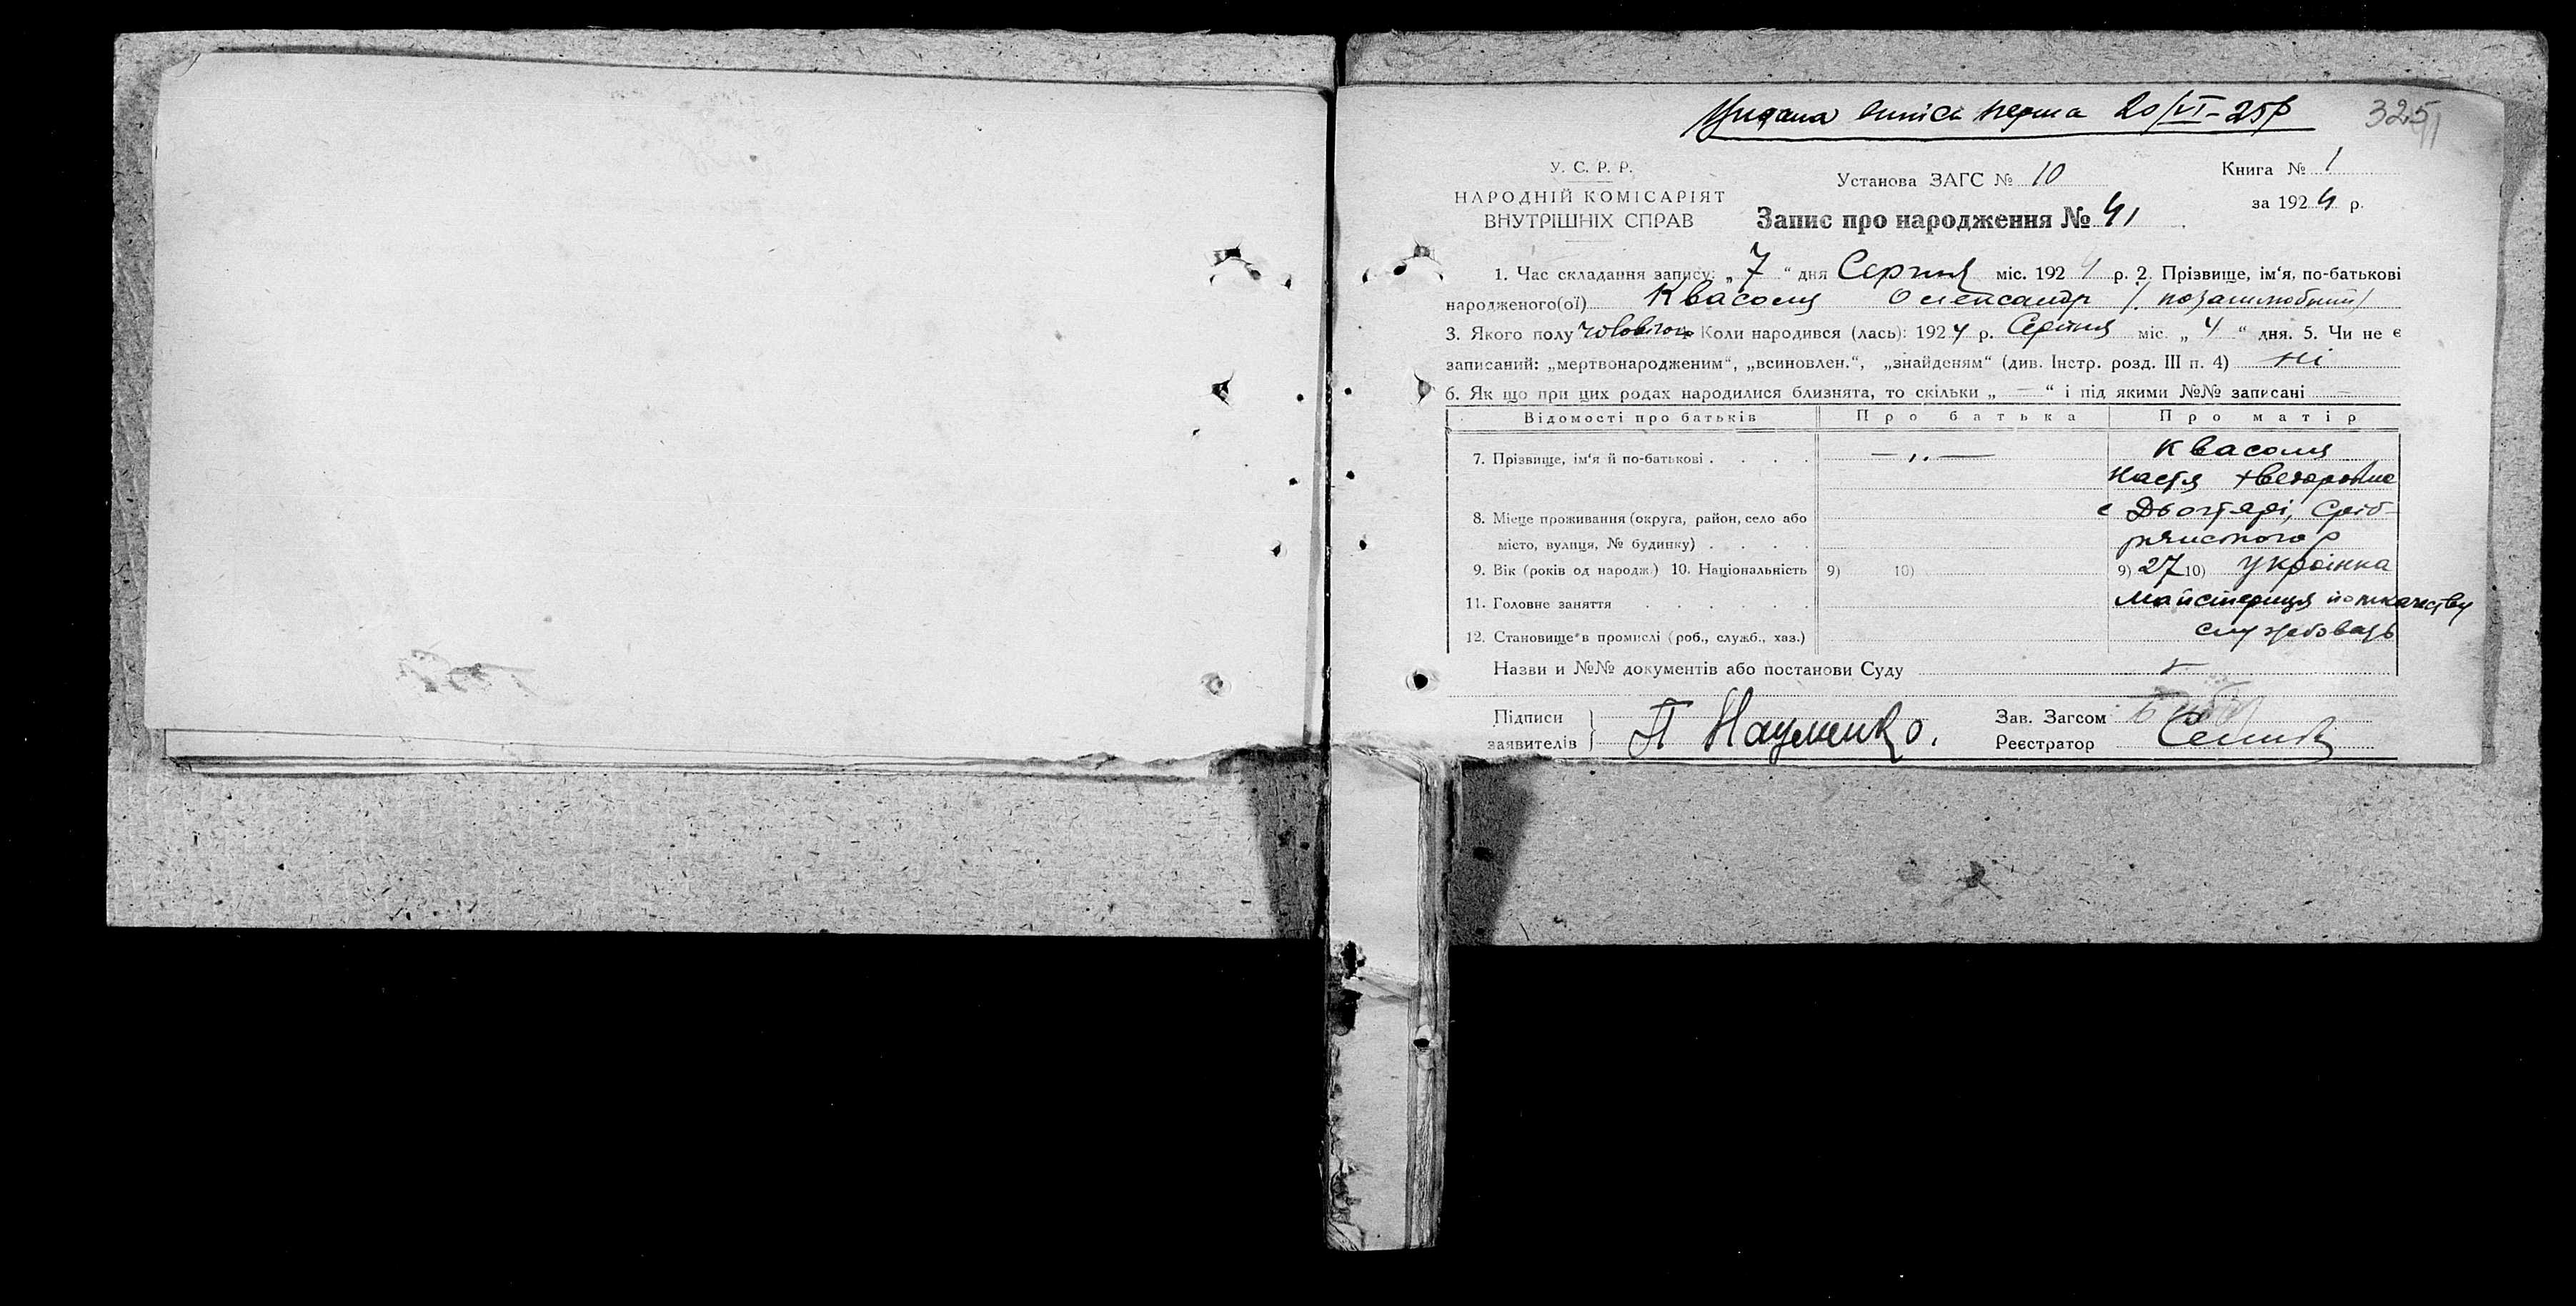 Видана випісь перша 20/VI-25р 325
У. С. Р. Р.
НАРОДНІЙ КОМІСАРІЯТ
ВНУТРІШНІХ СПРАВ
Установа ЗАГС № 10
Книга № 1
за 1924 р.
Запис про народження № 41
1. Час складання запису: „7“ дня Серпня міс. 1924 р. 2. Прізвище, ім‘я, по-батькові
народженого(ої) Квасоля Олександр (позашлюбний)
3. Якого полу чоловічого Коли народився (лась): 1924 р. Серпня міс. „4“ дня. 5. Чи не є
записаний: „мертвонародженим“, „всиновлен.“, „знайденям“ (див. Інстр. розд. III п. 4) ні
6. Як що при цих родах народилися близнята, то скільки „—“ і під якими №№ записані —
Відомості про батьків Про батька Про матір
7. Прізвище, ім‘я й по-батькові . . . . —„— Квасоля
Настя Хведоровна
8. Місце проживання (округа, район, село або с Дьогтярі, Сріб-
місто, вулиця, № будинку) . . . . рянського р
9. Вік (років од народж.) 10. Національність 9) 10) 9) 27 10) Українка
11. Головне заняття . . . . . . Майстериця по ткачеству
12. Становище в промислі (роб., служб., хаз.)
Назви и №№ документів або постанови Суду
Підписи
заявителів П Науменко.
Зав. Загсом
Реєстратор